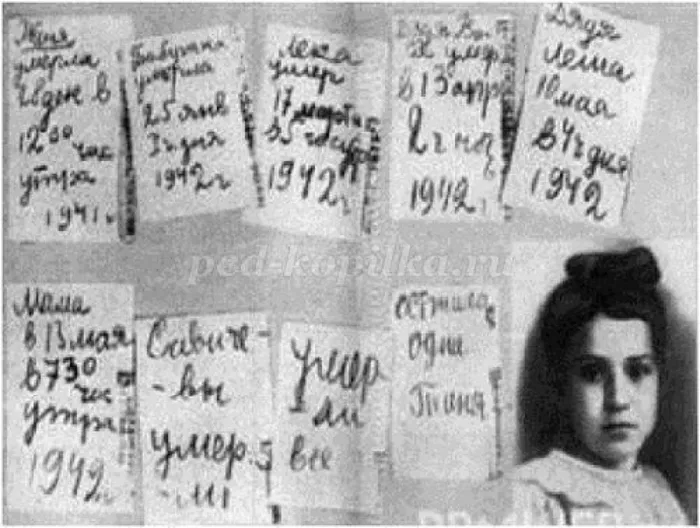 Женя
умерла
28 дек в
12 00 час
утра
1941 г
Бабушка
умерла
25 янв
3 ч дня
1942 г
Лека
умер
17 марта
в 5 час утр
1942 г
Дядя Вася
умер
в 13 апр
2 ч ноч
1942 г
Дядя
Леша
10 мая
в 4 ч дня
1942
Мама
в 13 мая
в 730
час
утра
1942 г
Савиче-
-вы
умер
-ли
умер
-ли
все
осталась
одна
Таня
ped-kopilka.ru